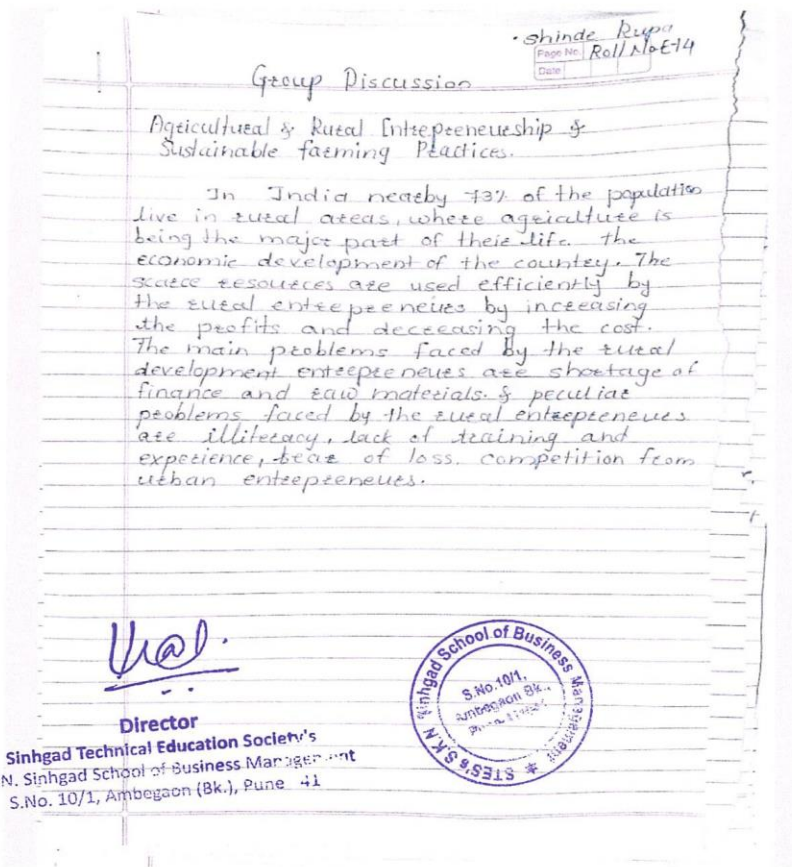 Shinde Rupa
Page No. Roll No E-14
Date
Group Discussion
Agricultural & Rural Entrepreneurship &
Sustainable farming Practices.
In India nearby 73% of the population
live in rural areas, where agriculture is
being the major part of their life. the
economic development of the country. The
scarce resources are used efficiently by
the rural entrepreneurs by increasing
the profits and decreasing the cost.
The main problems faced by the rural
development entrepreneurs are shortage of
finance and raw materials. & peculiar
problems faced by the rural entrepreneurs
are illiteracy, lack of training and
experience, fear of loss. competition from
urban entrepreneurs.
Director
Sinhgad Technical Education Society's
N. Sinhgad School of Business Management
S.No. 10/1, Ambegaon (Bk.), Pune 41
STES's S.K.N Sinhgad School of Business Management
S.No.10/1,
Ambegaon Bk.,